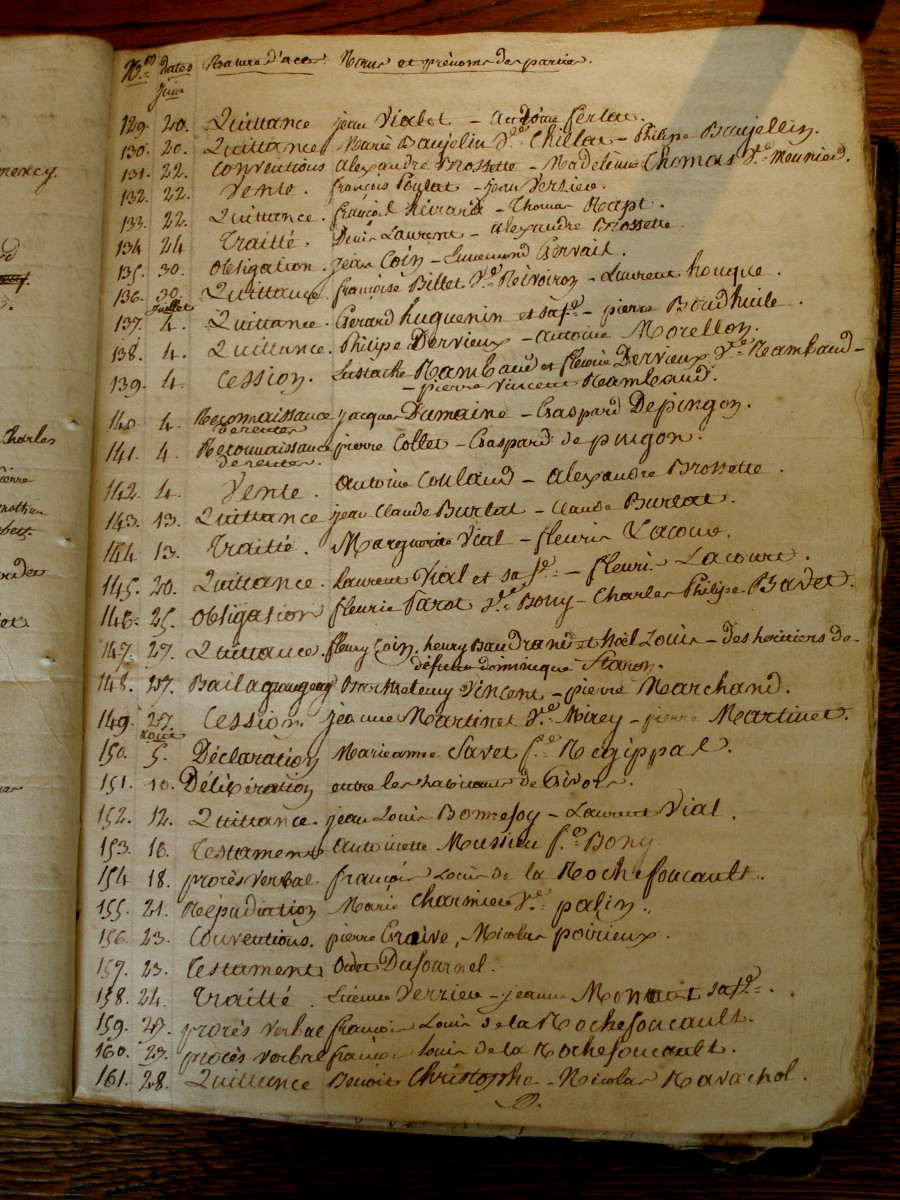 mercy.
Charles
N.os dates Nature d'actes Noms et prénoms des parties.
Juin
129. 20. Quittance jean Vialet - Antoine Ferlat.
130. 20. Quittance Marie Baujelin V.e Chillat - Philipe Baujellin.
131. 22. Conventions Alexandre Brossette - Madeleine Thomas V.e Meunier.
132. 22. Vente. françois Poulat - jean Verzieu.
133. 22. Quittance. françois - Thomas Rapt.
134 24 Traitté. Denis Laurent - alexandre Brossette
135. 30. Obligation. jean Coin - Gervais.
136. 30. Quittance. françoise Billet V.e - Laurent houque.
Juillet
137. 4. Quittance. Gerard huguenin et sa f.e - pierre Boudhuile.
138. 4. Quittance. Philipe Dervieux - Antoine Morellon.
139. 4. Cession. Eustache Rambaud et fleurie Dervieux V.e Rambaud -
- pierre Vincent Rambaud.
140. 4. Reconnaissance jacques Dumaine - Gaspard Depingon.
de rentes
141. 4. Reconnaissance pierre Collet - Gaspard de pingon.
de rentes.
142. 4. Vente. Antoine Coulaud - alexandre Brossette.
143. 13. Quittance jean Claude Burlat - Claude Burlat.
144 13. Traitté. Marguerite Vial - fleuri Lacour.
145. 20. Quittance. Laurent Vial et sa f.e - fleuri Lacourt.
146. 25. Obligation fleurie Parot V.e Bony - Charles Philipe Bavet.
147. 27. Quittance. fleury Coin, henry Baudrand et Noël Louis - des heritiers de
défunt dominique Staron.
148. 27. Bail a grangeage Barthelemy Vincent - pierre Marchand.
149. 27. Cession jeanne Martinet V.e Mirey - pierre Martinet.
Aout
150. 5. Déclaration Marieanne Savet f.e Regippal.
151. 10. Délibération entre les habitans de Givors.
152. 12. Quittance. jean Louis Bonnefoy - Laurent Vial.
153. 16. Testament antoinette Mussieu f.e Bony
154 18. procès verbal. françois Louis de la Rochefoucault.
155. 21. Répudiation Marie Charmier V.e palin.
156. 23. Conventions. pierre Graive, Nicolas poirieux.
157. 23. Testament Odet Dufournel.
158. 24. Traitté. Etienne Verzieu - jeanne sa f.e.
159. 27. procès verbal françois Louis de la Rochefoucault.
160. 27. procès verbal françois louis de la Rochefoucault.
161. 28. Quittance Benoit Christophe - Nicolas Ravachol.